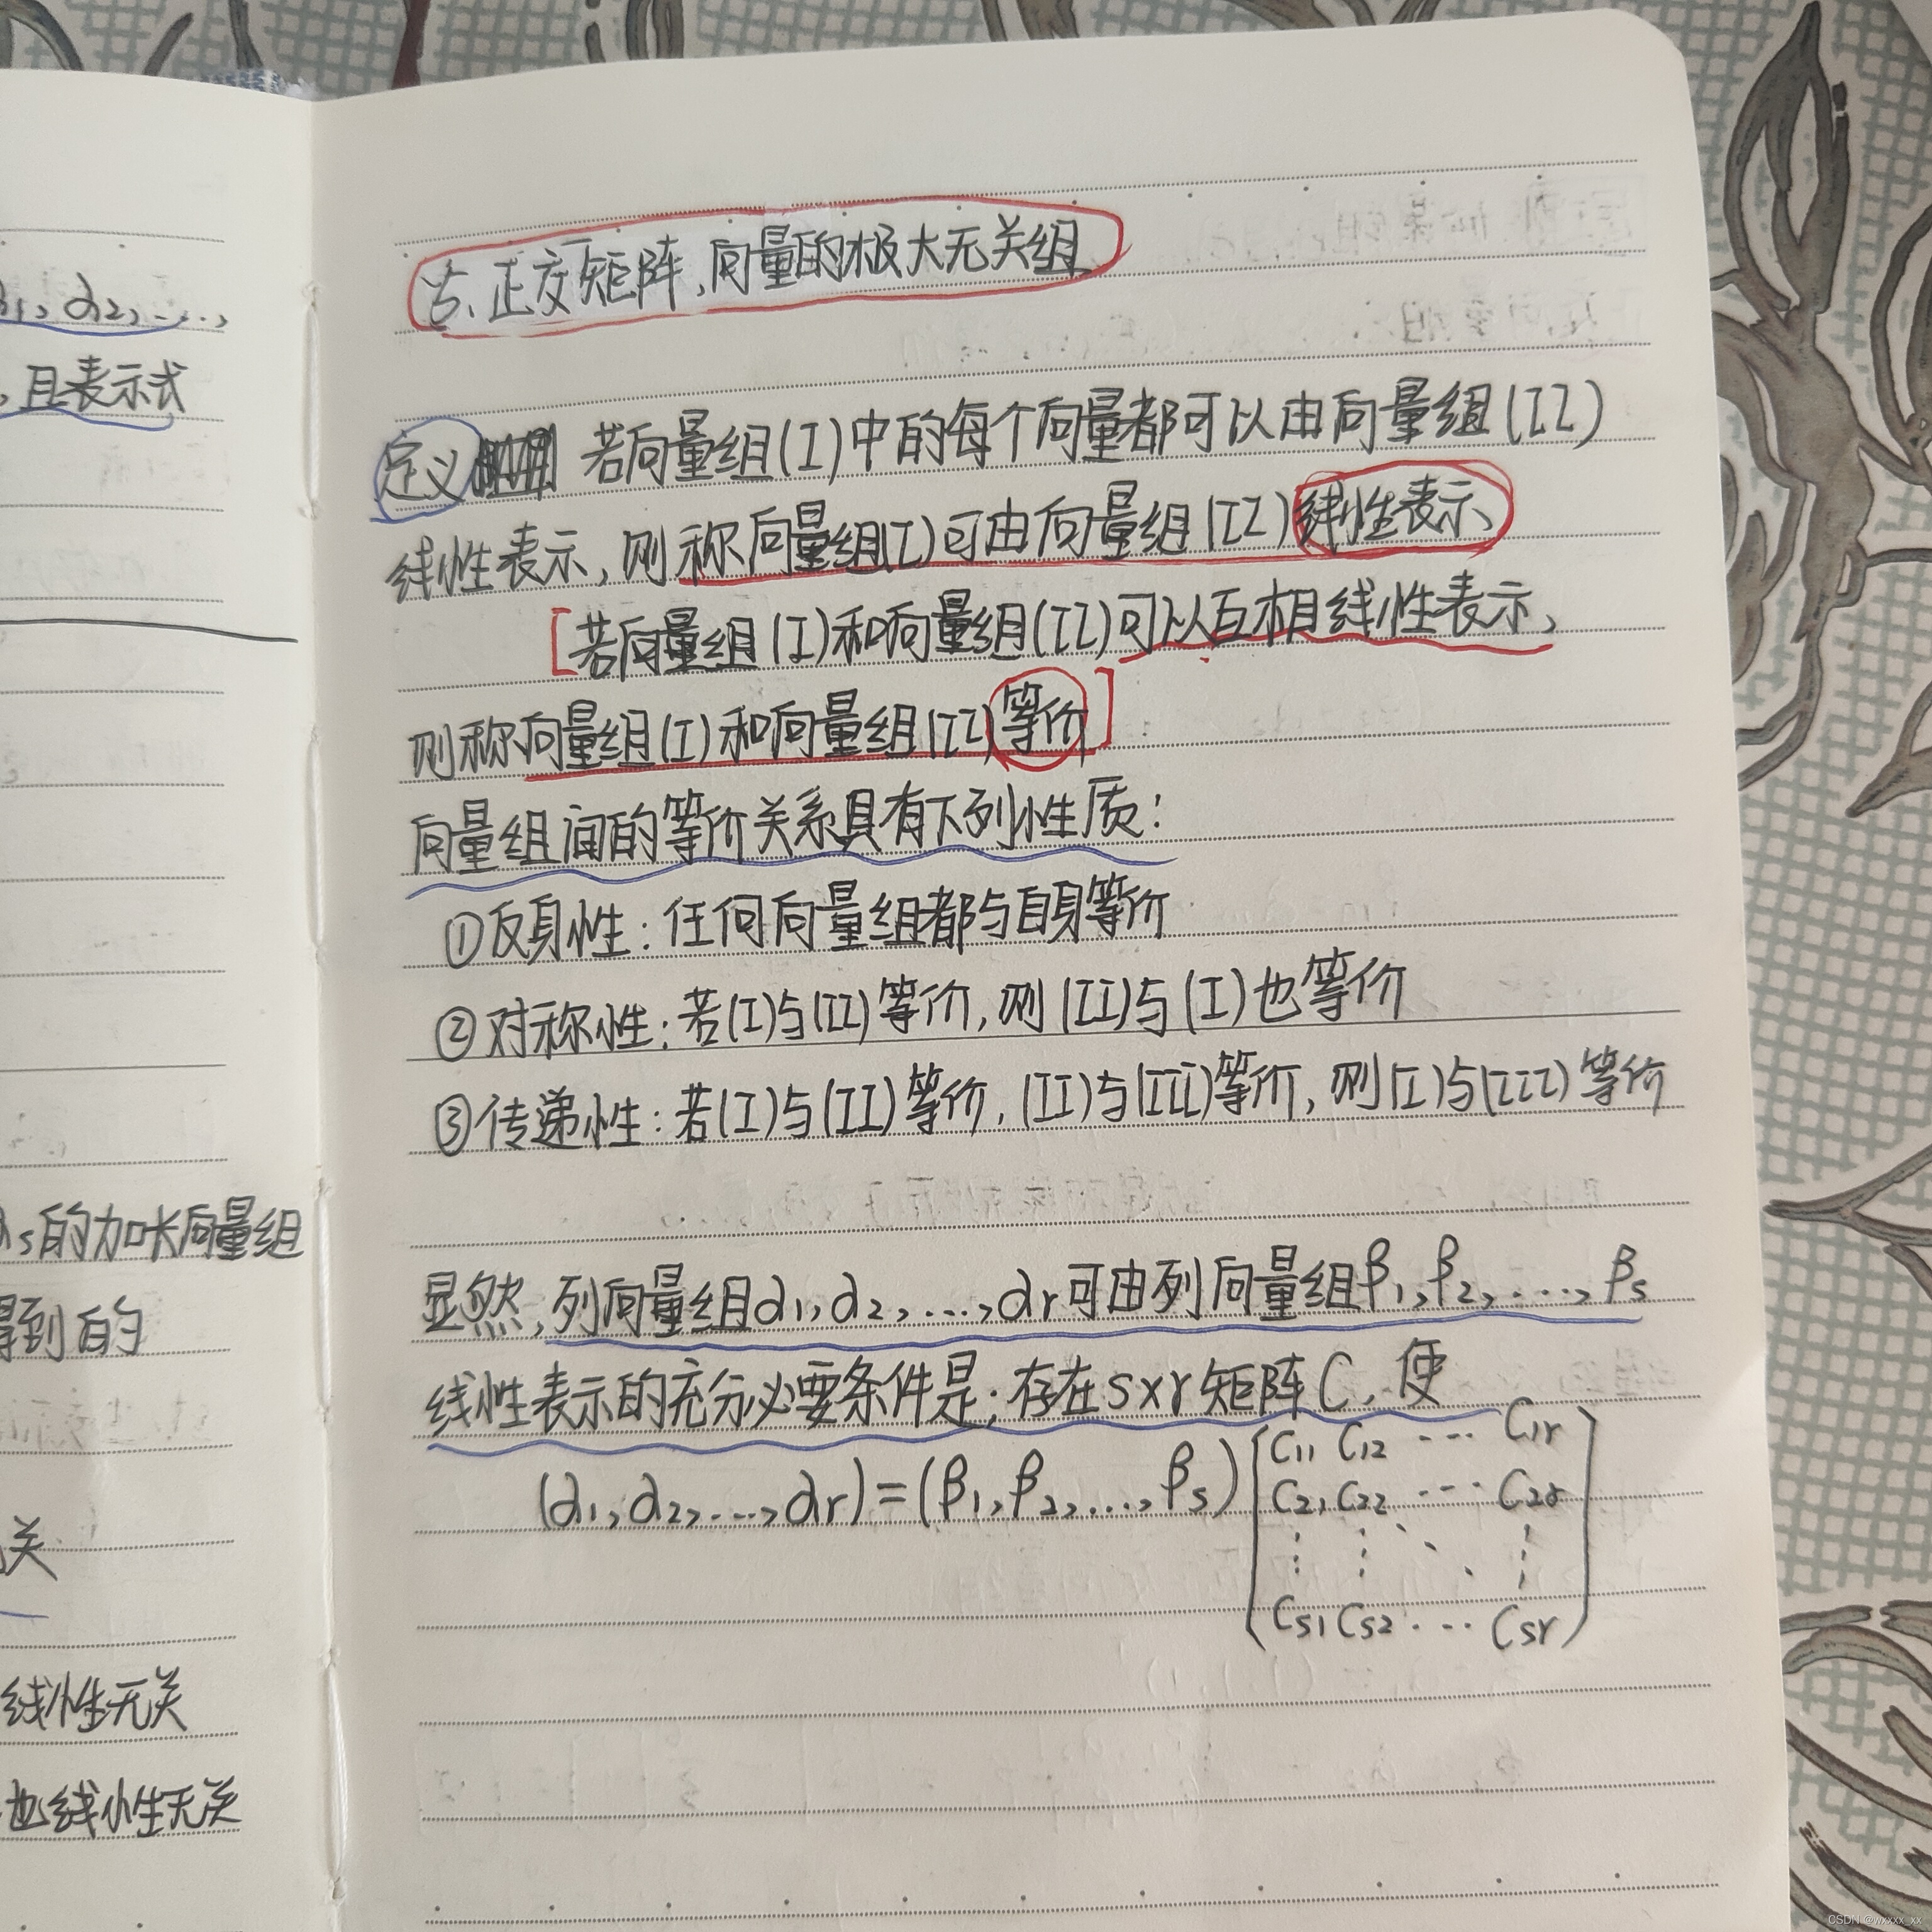 α1, α2, …,
, 且表示式
αs的加长向量组
得到的
关
线性无关
也线性无关
5、正交矩阵,向量的极大无关组
定义 若向量组(I)中的每个向量都可以由向量组(II)
线性表示,则称向量组(I)可由向量组(II)线性表示
[若向量组(I)和向量组(II)可以互相线性表示,
则称向量组(I)和向量组(II)等价]
向量组间的等价关系具有下列性质:
①反身性:任何向量组都与自身等价
②对称性:若(I)与(II)等价,则(II)与(I)也等价
③传递性:若(I)与(II)等价,(II)与(III)等价,则(I)与(III)等价
显然,列向量组α1,α2,…,αr可由列向量组β1,β2,…,βs
线性表示的充分必要条件是:存在s×r矩阵C,使
(α1,α2,…,αr)=(β1,β2,…,βs)
C11 C12 … C1r
C21 C22 … C2r
⋮ ⋮ ⋱ ⋮
Cs1 Cs2 … Csr
CSDN @wxxxx_xx